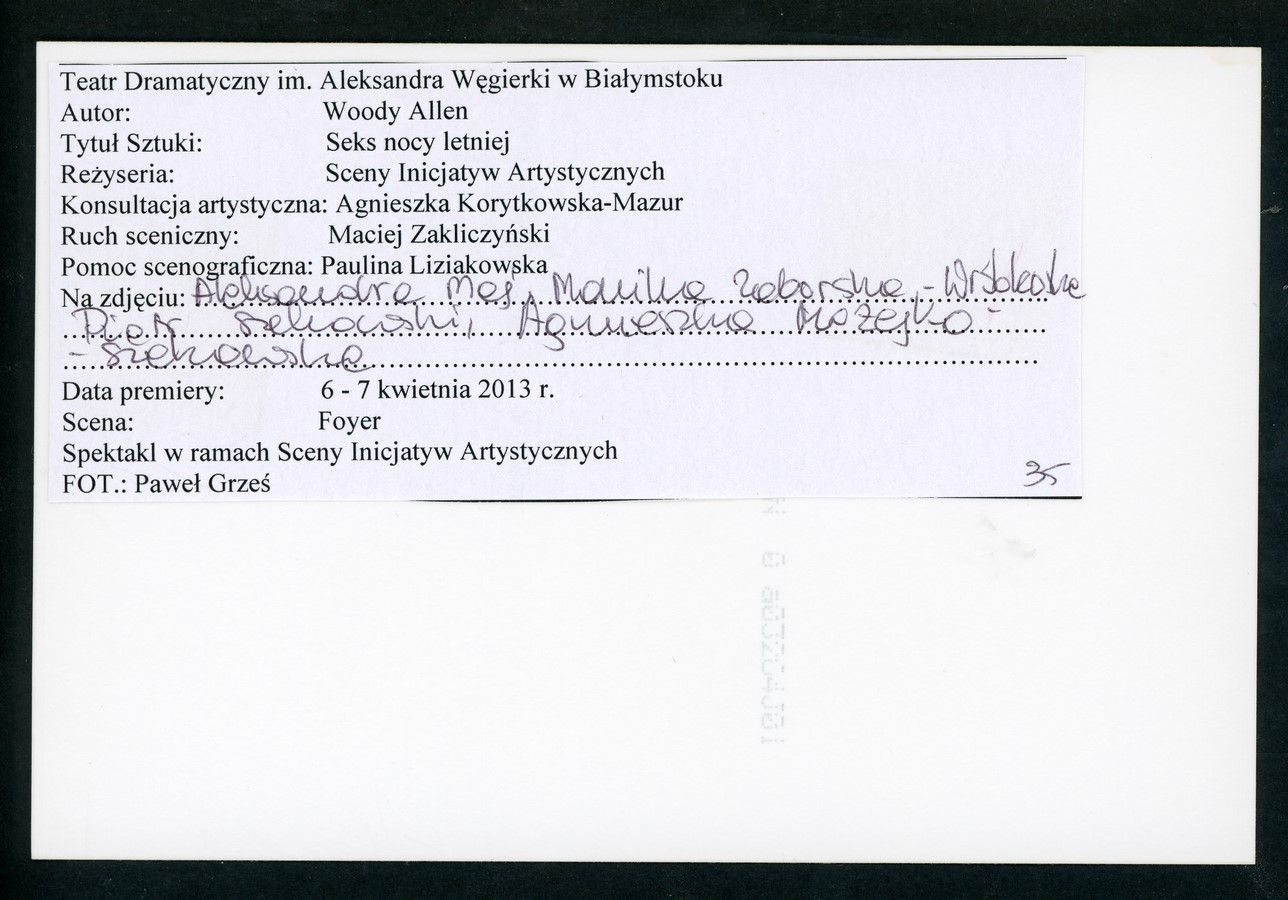 Teatr Dramatyczny im. Aleksandra Węgierki w Białymstoku
Autor: Woody Allen
Tytuł Sztuki: Seks nocy letniej
Reżyseria: Sceny Inicjatyw Artystycznych
Konsultacja artystyczna: Agnieszka Korytkowska-Mazur
Ruch sceniczny: Maciej Zakliczyński
Pomoc scenograficzna: Paulina Liziakowska
Na zdjęciu: Aleksandra Maj, Monika Zaborska-
Piotr Szekowski, Agnieszka Możejko-
-Szekowska
Data premiery: 6 - 7 kwietnia 2013 r.
Scena: Foyer
Spektakl w ramach Sceny Inicjatyw Artystycznych
FOT.: Paweł Grześ
35